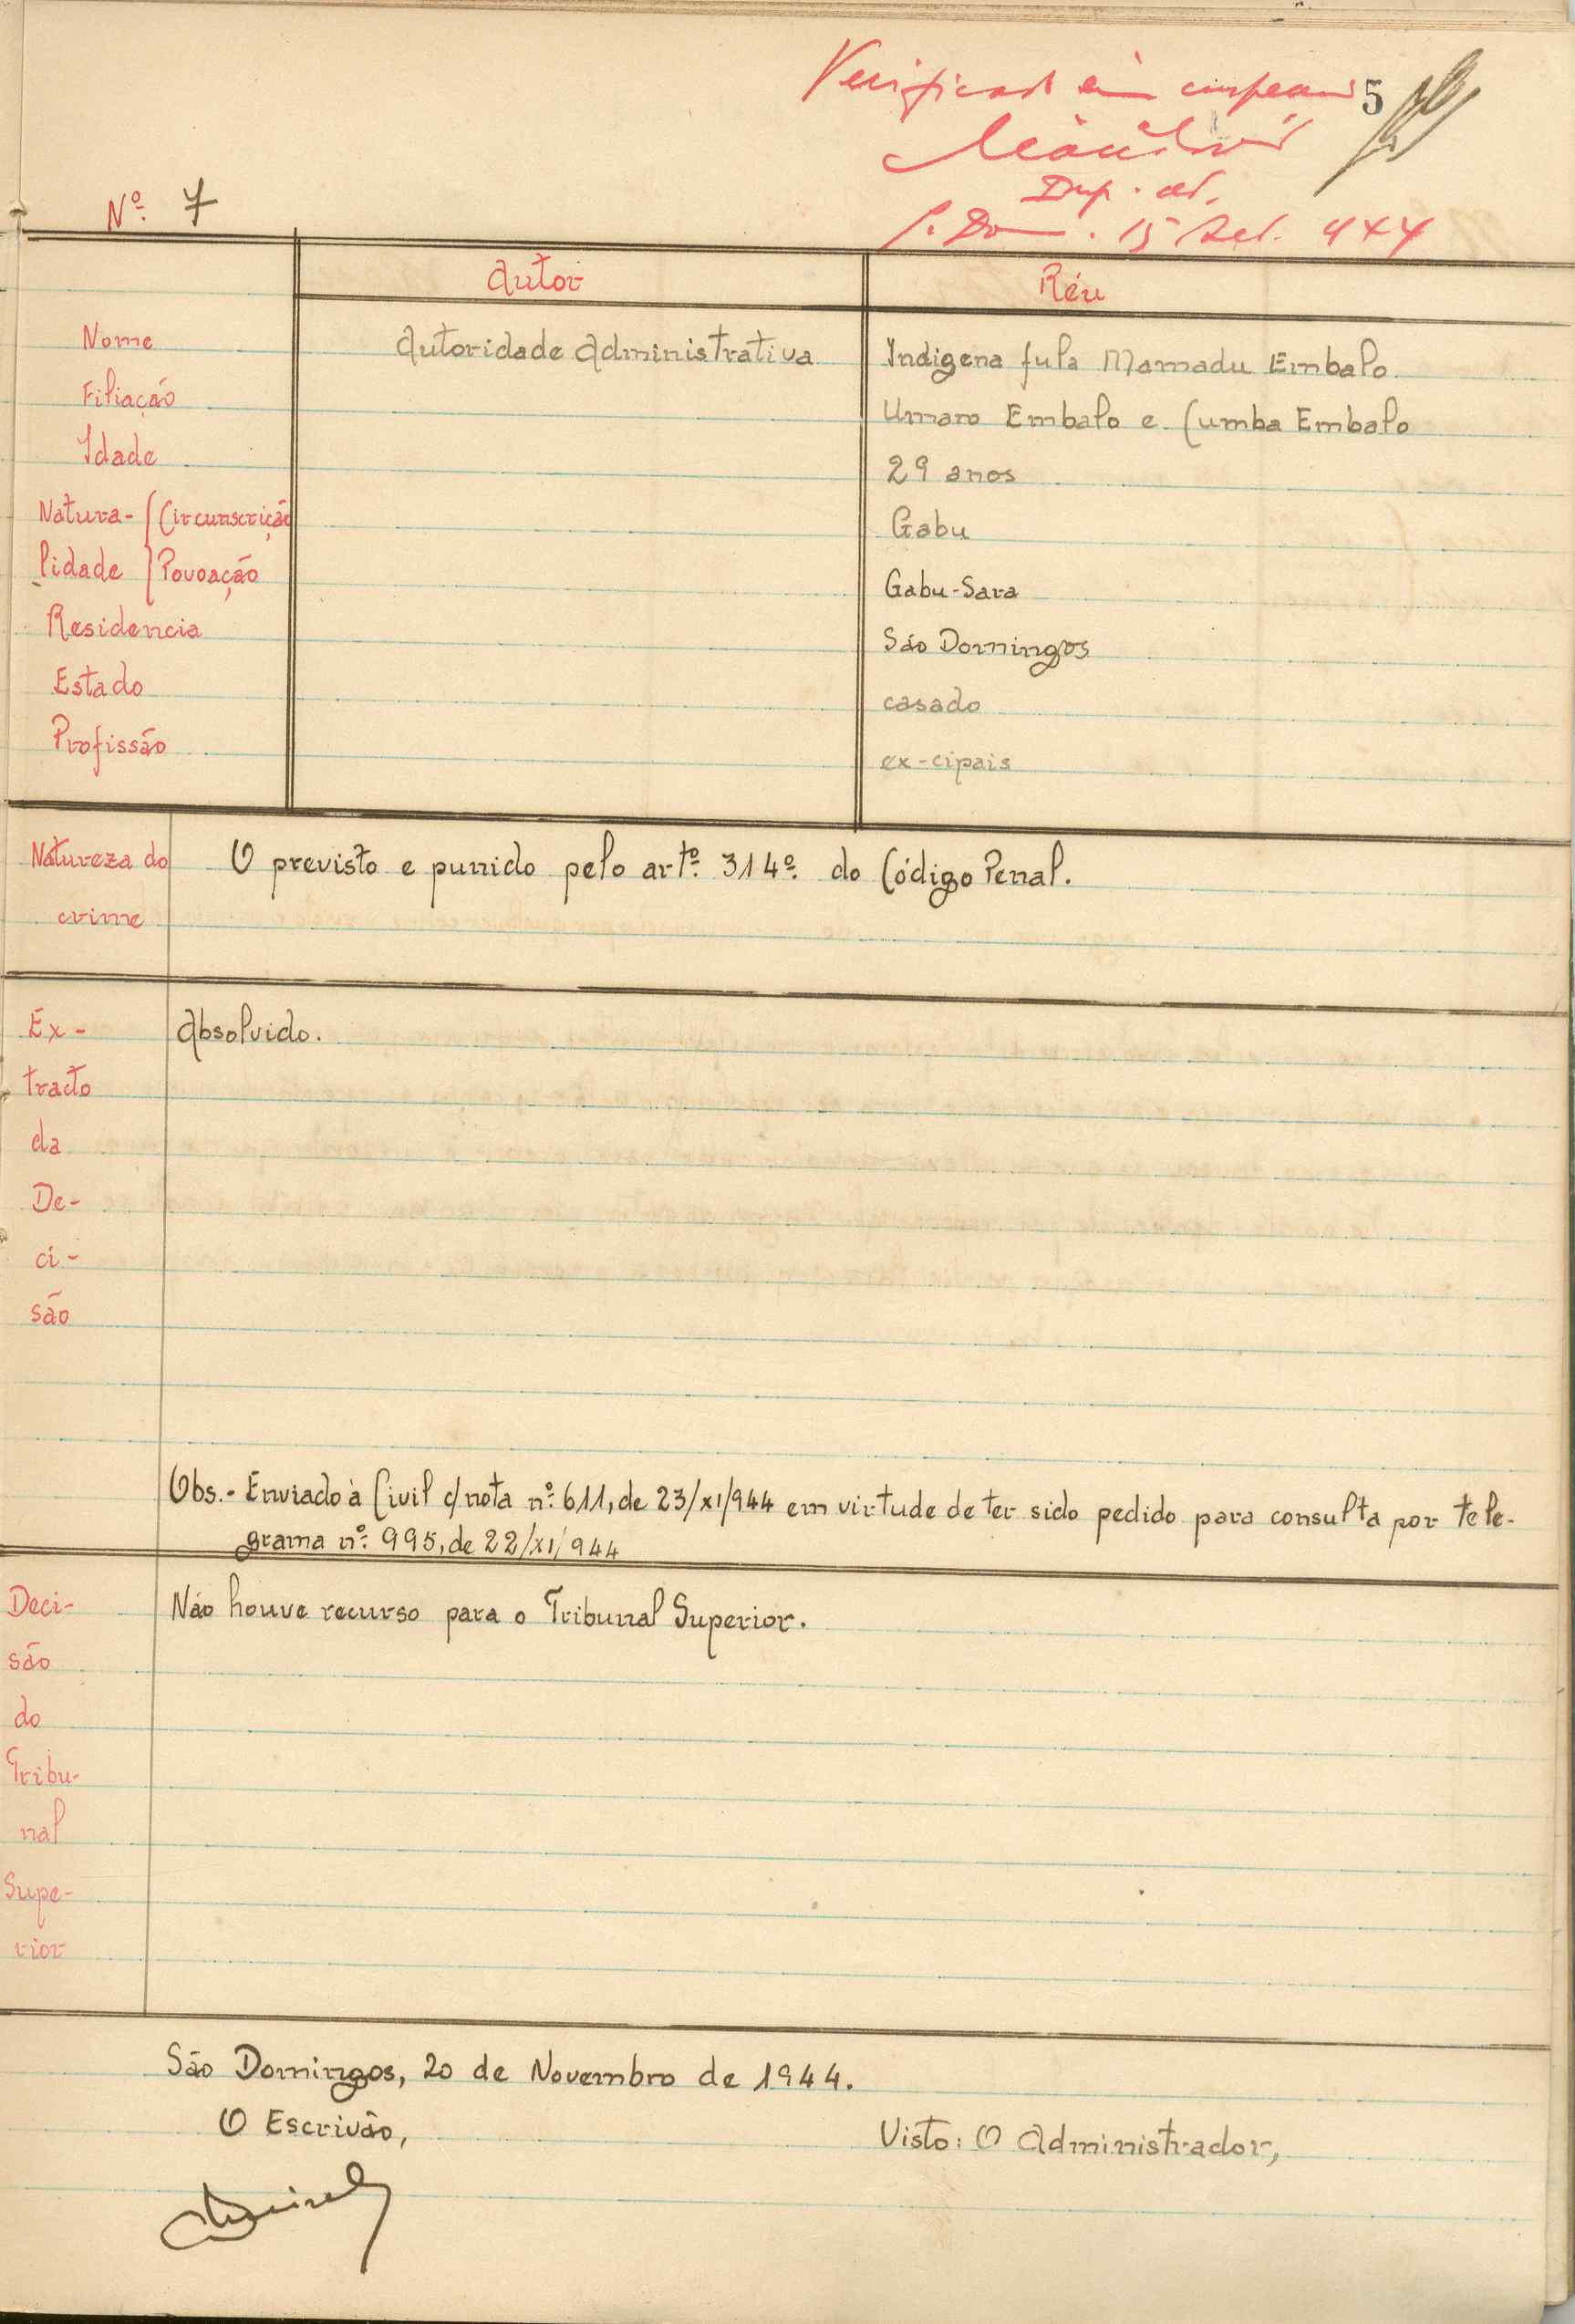 Verificado em
5
Insp. ad.
S. Dom. 15 Set. 944
Nº. 7
Autor
Réu
Nome
Autoridade Administrativa
Indigena fula Mamadu Embalo
Filiação
Umaro Embalo e Cumba Embalo
Idade
29 anos
Natura- { Circunscrição
Gabu
lidade } Povoação
Gabu-Sara
Residencia
São Domingos
Estado
casado
Profissão
ex-cipais
Natureza do
crime
O previsto e punido pelo artº. 314º. do Código Penal.
Ex-
tracto
da
De-
ci-
são
Absolvido.
Obs.- Enviado à Civil c/nota nº. 611, de 23/XI/944 em virtude de ter sido pedido para consulta por tele-
grama nº. 995, de 22/XI/944
Deci-
são
do
Tribu-
nal
Supe-
rior
Não houve recurso para o Tribunal Superior.
São Domingos, 20 de Novembro de 1944.
O Escrivão,
Visto: O Administrador,